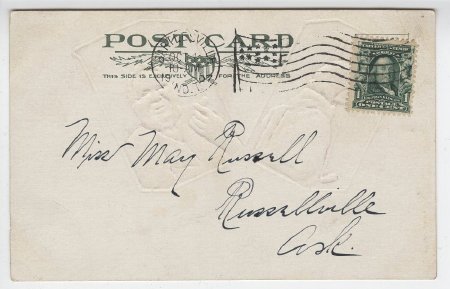 POST CARD
THIS SIDE IS EXCLUSIVELY FOR THE ADDRESS
Miss May Russell
Russellville
Ark.